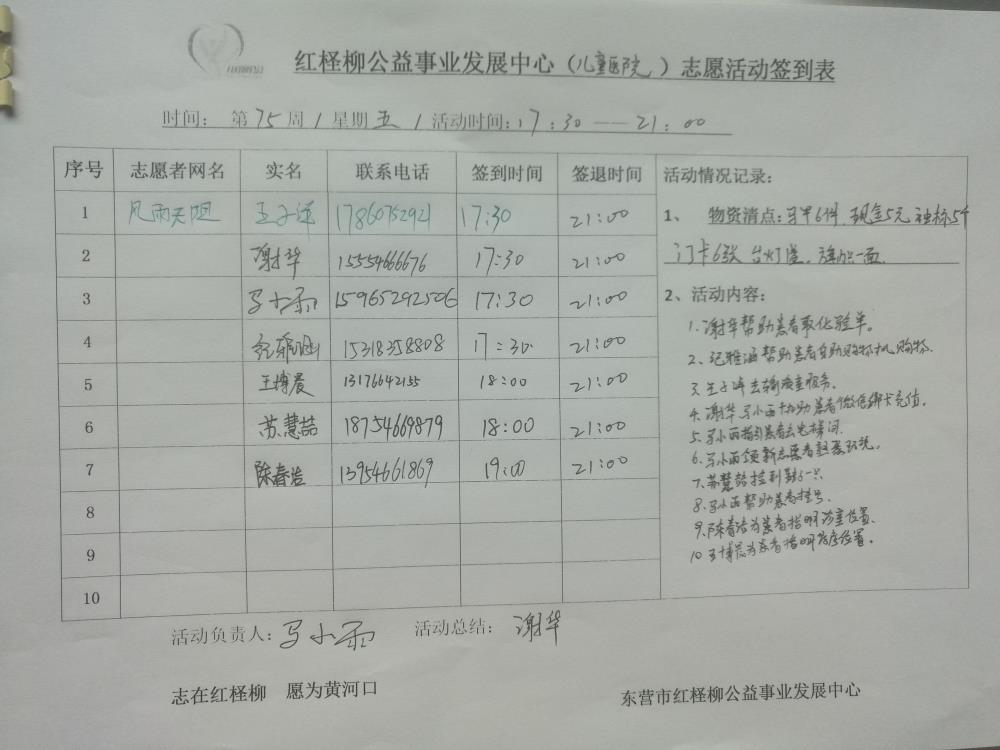 红柽柳公益事业发展中心（儿童医院）志愿活动签到表
时间： 第75周 / 星期五 / 活动时间：17：30 —— 21：00
序号 志愿者网名 实名 联系电话 签到时间 签退时间
1 风雨无阻 王子洋 17860752921 17:30 21:00
2 谢华 15554666676 17:30 21:00
3 马小雨 15965292506 17:30 21:00
4 纪雅涵 15318358808 17:30 21:00
5 王博晨 13176642155 18:00 21:00
6 苏慧喆 18754669879 18:00 21:00
7 陈春浩 13954661869 19:00 21:00
8
9
10
活动情况记录：
1、 物资清点：马甲6件 现金5元 袖标5个
门卡6张 台灯1盏，旗帜一面
2、活动内容：
1.谢华帮助患者取化验单。
2、纪雅涵帮助患者自助购物机购物.
3.王子洋去输液室服务.
4.谢华马小雨协助患者微信绑卡充值.
5.马小雨指引患者去电梯间.
6.马小雨领新志愿者熟悉环境.
7.苏慧喆捡到鞋子一只
8.马小雨帮助患者挂号.
9.陈春浩为患者指明诊室位置.
10.王博晨为患者指明位置.
活动负责人：马小雨 活动总结： 谢华
志在红柽柳 愿为黄河口
东营市红柽柳公益事业发展中心